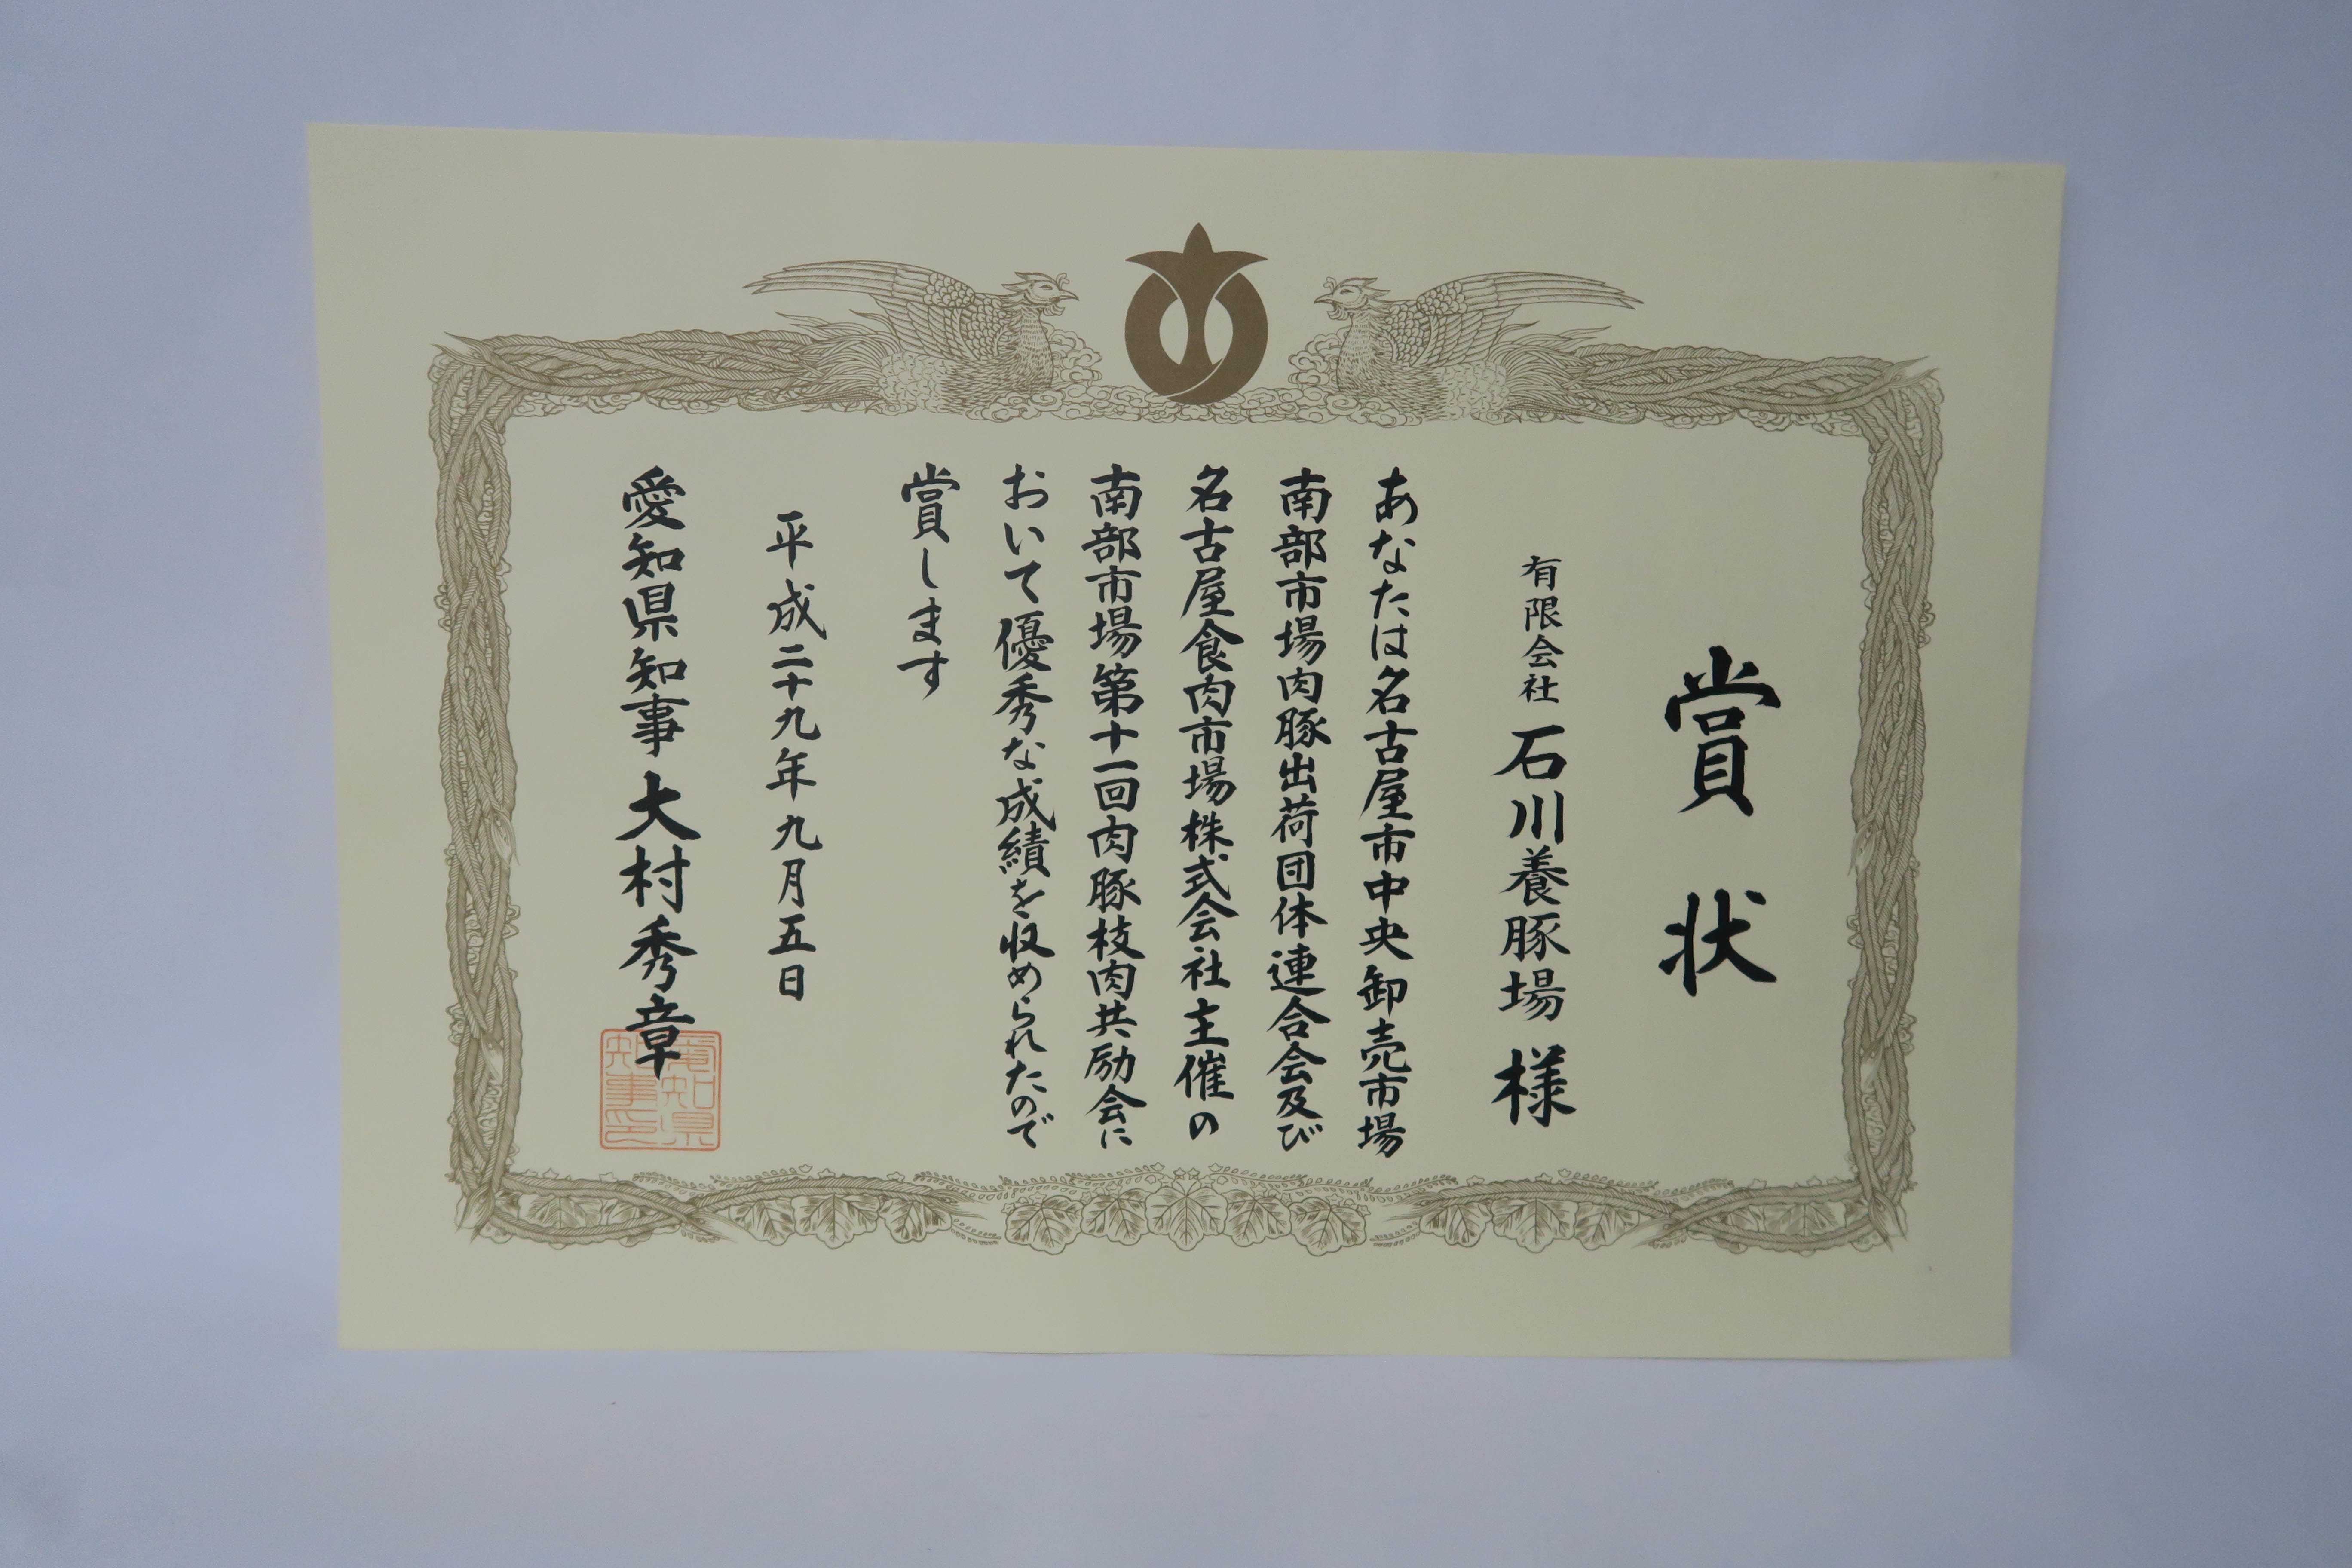 賞状
有限会社 石川養豚場 様
あなたは名古屋市中央卸売市場
南部市場肉豚出荷団体連合会及び
名古屋食肉市場株式会社主催の
南部市場第十一回肉豚枝肉共励会に
おいて優秀な成績を収められたので
賞します
平成二十九年九月五日
愛知県知事 大村秀章
愛知県
知事印